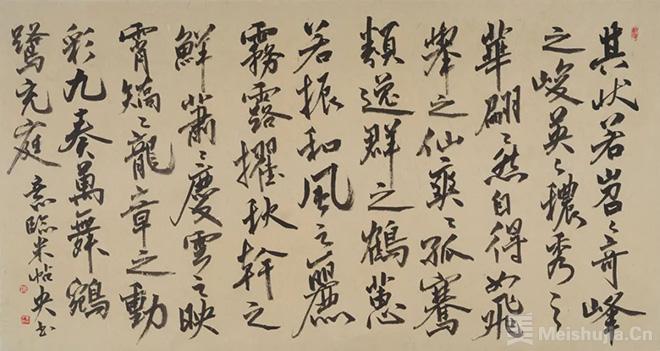 其狀若岧〻奇峰
之峻英〻穠秀之
華翩〻然自得如飛
舉之仙爽〻孤騫
類逸群之鶴蕙
若振和風之麗
霧露擢秋幹之
鮮蕭〻慶雲之映
霄矯〻龍章之動
彩九奏萬舞鵷
鷺充庭 意臨米帖央书
Meishujia.Cn